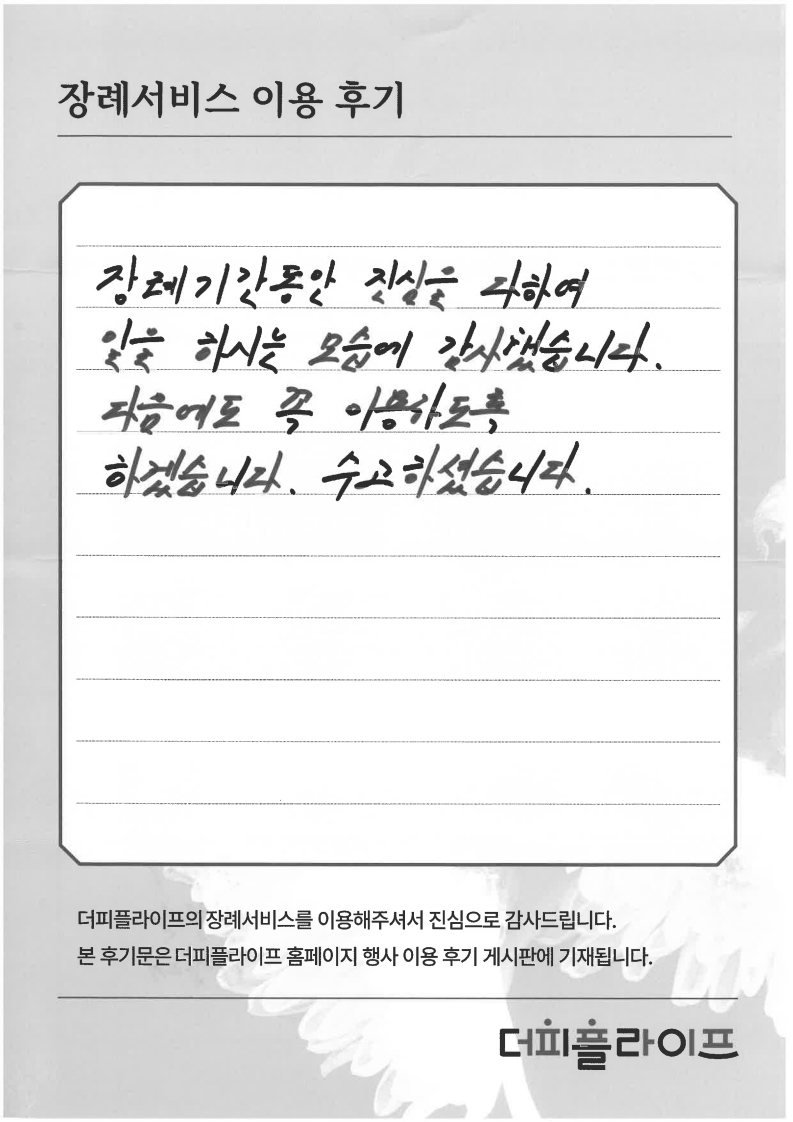 장례서비스 이용 후기
장례기간동안 진심을 다하여
일을 하시는 모습에 감사했습니다.
다음에도 꼭 이용하도록
하겠습니다. 수고하셨습니다.
더피플라이프의 장례서비스를 이용해주셔서 진심으로 감사드립니다.
본 후기문은 더피플라이프 홈페이지 행사 이용 후기 게시판에 기재됩니다.
더피플라이프